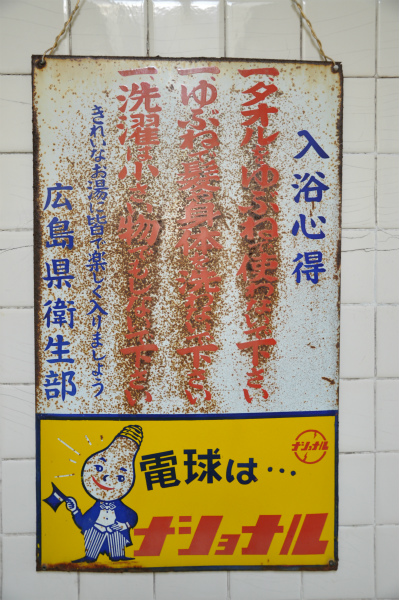 入浴心得
一タオルをゆぶねで使わないで下さい
一ゆぶねで髪や身体を洗わない下さい
一洗濯は小さい物でもしない下さい
きれいなお湯に皆で楽しく入りましょう
広島県衛生部
電球は…
ナショナル
ナショナル